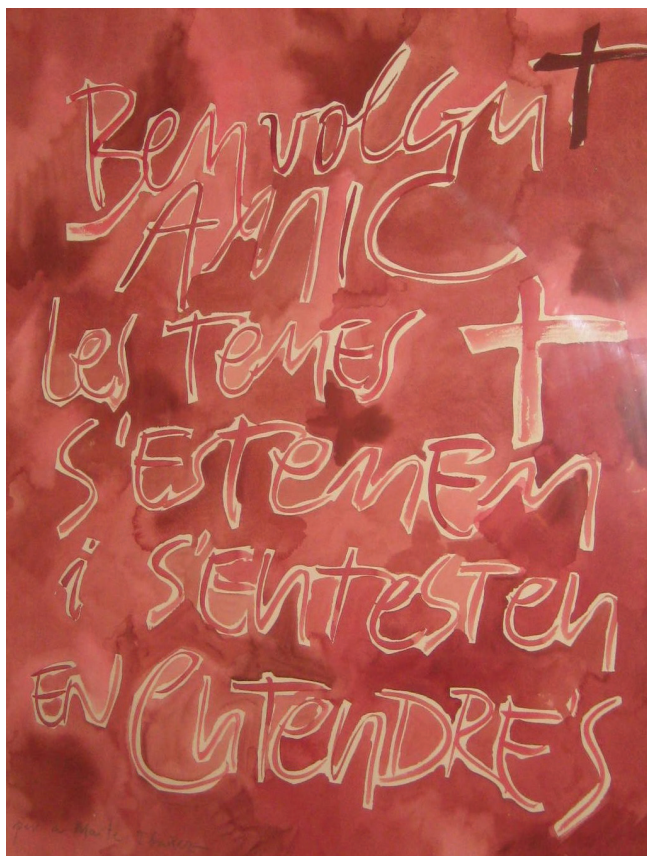 Benvolgut
AMIC
les TemES
S'EsTemEm
i S'EntesTen
EN entenDRE'S